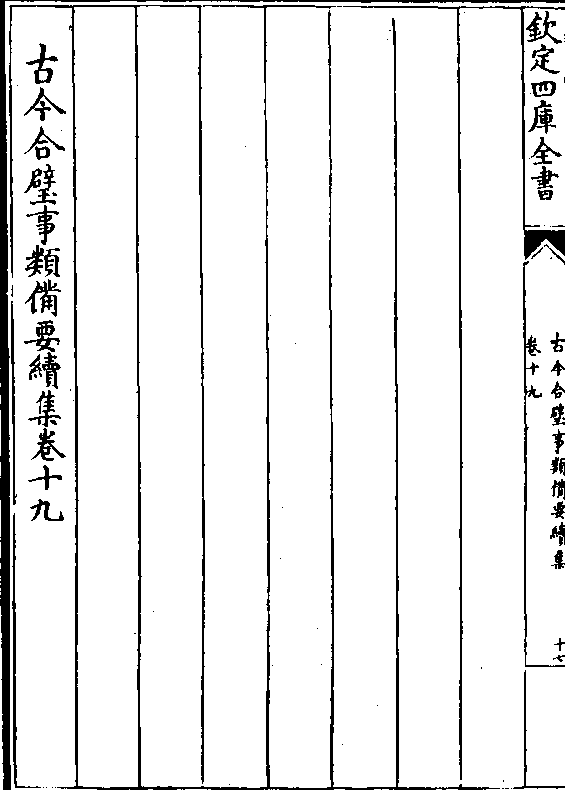 欽定四庫全書
古今合璧事類備要續集
卷十九
十七
古今合璧事類備要續集卷十九